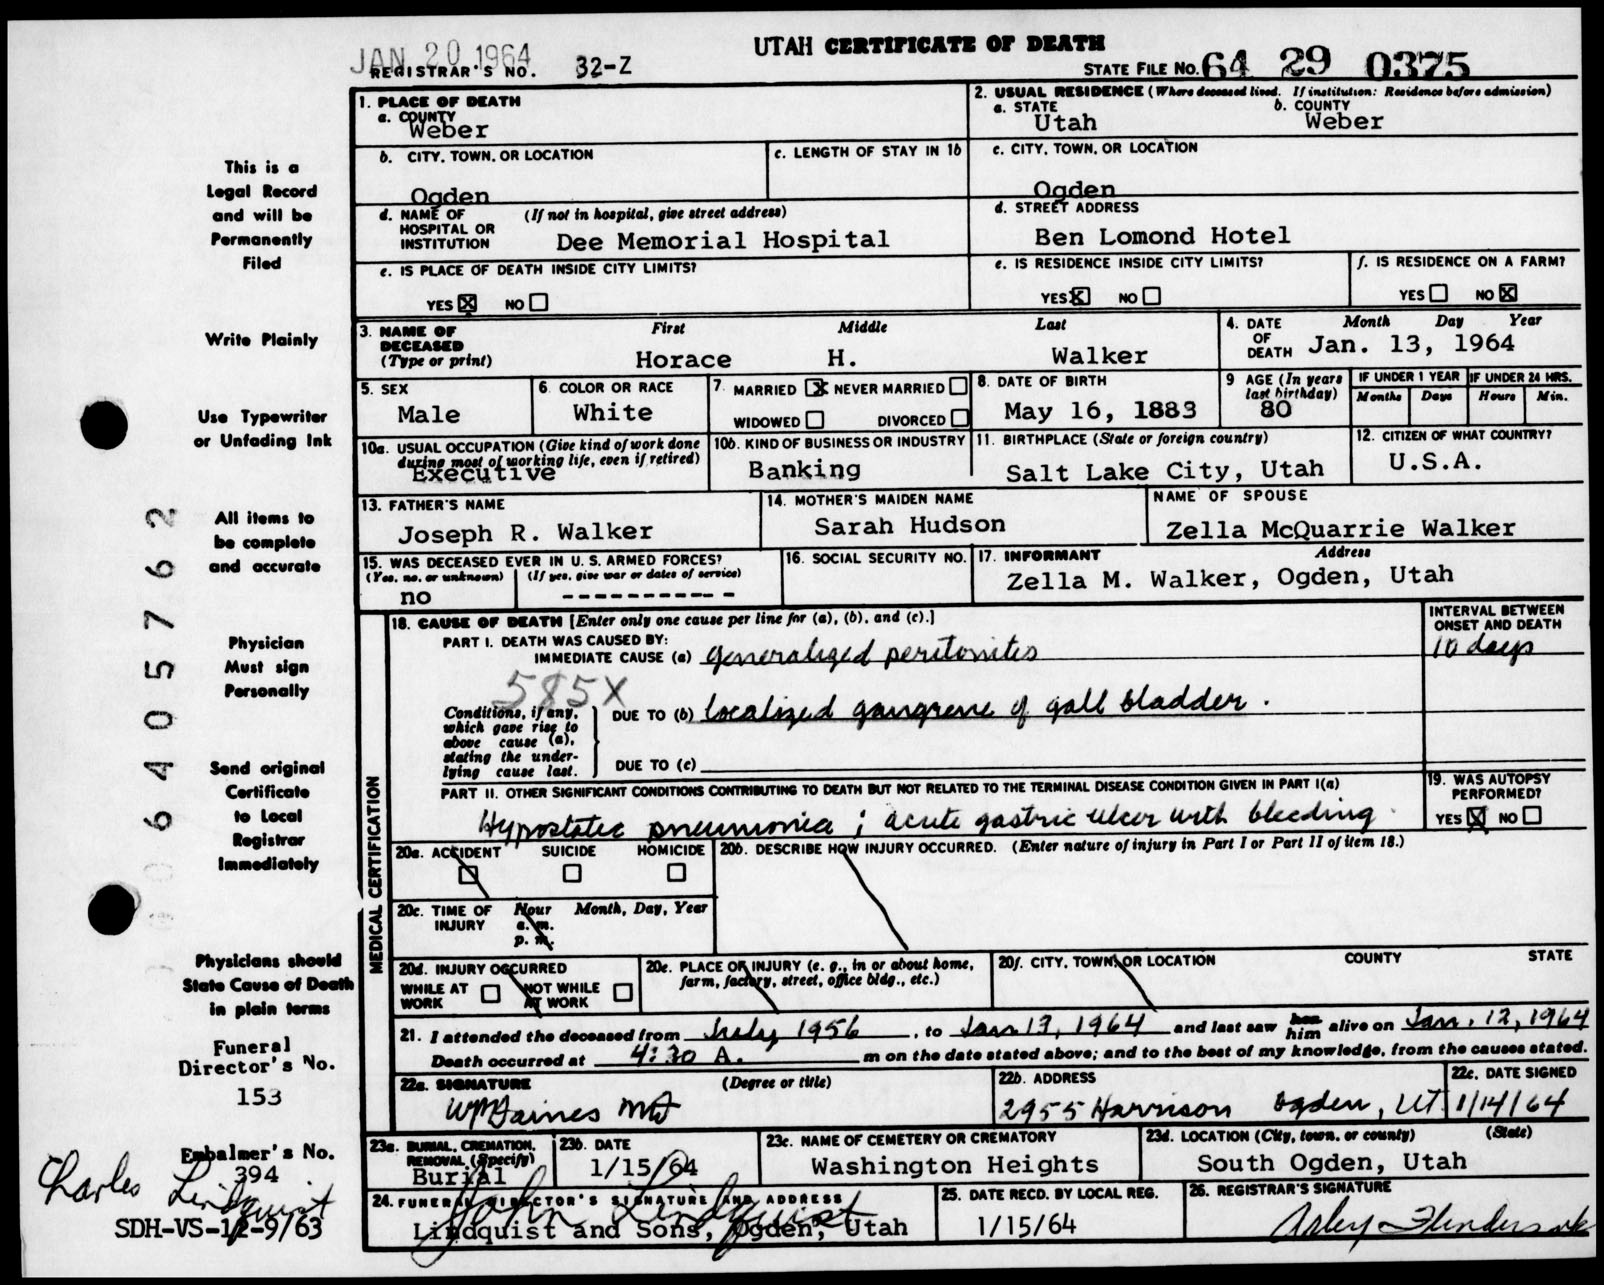 UTAH CERTIFICATE OF DEATH
JAN 20 1964
REGISTRAR'S NO. 32-Z
STATE FILE NO. 64 29 0375
1. PLACE OF DEATH
a. COUNTY
Weber
2. USUAL RESIDENCE (Where deceased lived. If institution: Residence before admission)
a. STATE b. COUNTY
Utah Weber
b. CITY, TOWN, OR LOCATION
Ogden
c. LENGTH OF STAY IN 1b
c. CITY, TOWN, OR LOCATION
Ogden
d. NAME OF HOSPITAL OR INSTITUTION (If not in hospital, give street address)
Dee Memorial Hospital
d. STREET ADDRESS
Ben Lomond Hotel
e. IS PLACE OF DEATH INSIDE CITY LIMITS?
YES X NO
e. IS RESIDENCE INSIDE CITY LIMITS?
YES X NO
f. IS RESIDENCE ON A FARM?
YES NO X
3. NAME OF DECEASED (Type or print)
First Middle Last
Horace H. Walker
4. DATE OF DEATH Month Day Year
Jan. 13, 1964
5. SEX
Male
6. COLOR OR RACE
White
7. MARRIED X NEVER MARRIED
WIDOWED DIVORCED
8. DATE OF BIRTH
May 16, 1883
9 AGE (In years last birthday)
80
IF UNDER 1 YEAR
Months Days
IF UNDER 24 HRS.
Hours Min.
10a. USUAL OCCUPATION (Give kind of work done
during most of working life, even if retired)
Executive
10b. KIND OF BUSINESS OR INDUSTRY
Banking
11. BIRTHPLACE (State or foreign country)
Salt Lake City, Utah
12. CITIZEN OF WHAT COUNTRY?
U.S.A.
13. FATHER'S NAME
Joseph R. Walker
14. MOTHER'S MAIDEN NAME
Sarah Hudson
NAME OF SPOUSE
Zella McQuarrie Walker
15. WAS DECEASED EVER IN U. S. ARMED FORCES?
(Yes, no, or unknown) (If yes, give war or dates of service)
no ----------
16. SOCIAL SECURITY NO.
17. INFORMANT Address
Zella M. Walker, Ogden, Utah
MEDICAL CERTIFICATION
18. CAUSE OF DEATH [Enter only one cause per line for (a), (b), and (c).]
INTERVAL BETWEEN
ONSET AND DEATH
PART I. DEATH WAS CAUSED BY:
IMMEDIATE CAUSE (a) generalized peritonitis 10 days
585X
Conditions, if any,
which gave rise to
above cause (a),
stating the under-
lying cause last.
DUE TO (b) localized gangrene of gall bladder.
DUE TO (c)
PART II. OTHER SIGNIFICANT CONDITIONS CONTRIBUTING TO DEATH BUT NOT RELATED TO THE TERMINAL DISEASE CONDITION GIVEN IN PART I(a)
Hypostatic pneumonia; acute gastric ulcer with bleeding.
19. WAS AUTOPSY
PERFORMED?
YES X NO
20a. ACCIDENT SUICIDE HOMICIDE
20b. DESCRIBE HOW INJURY OCCURRED. (Enter nature of injury in Part I or Part II of item 18.)
20c. TIME OF INJURY Hour Month, Day, Year
a. m.
p. m.
20d. INJURY OCCURRED
WHILE AT WORK NOT WHILE AT WORK
20e. PLACE OF INJURY (e. g., in or about home,
farm, factory, street, office bldg., etc.)
20f. CITY, TOWN, OR LOCATION COUNTY STATE
21. I attended the deceased from July 1956, to Jan 13, 1964 and last saw her him alive on Jan. 12, 1964
Death occurred at 4:30 A. m on the date stated above; and to the best of my knowledge, from the causes stated.
22a. SIGNATURE (Degree or title)
22b. ADDRESS
2955 Harrison Ogden, Ut.
22c. DATE SIGNED
1/14/64
23a. BURIAL, CREMATION,
REMOVAL (Specify)
Burial
23b. DATE
1/15/64
23c. NAME OF CEMETERY OR CREMATORY
Washington Heights
23d. LOCATION (City, town, or county) (State)
South Ogden, Utah
24. FUNERAL DIRECTOR'S SIGNATURE AND ADDRESS
John Lindquist
Lindquist and Sons, Ogden, Utah
25. DATE RECD. BY LOCAL REG.
1/15/64
26. REGISTRAR'S SIGNATURE
This is a
Legal Record
and will be
Permanently
Filed
Write Plainly
Use Typewriter
or Unfading Ink
All items to
be complete
and accurate
Physician
Must sign
Personally
Send original
Certificate
to Local
Registrar
Immediately
Physicians should
State Cause of Death
in plain terms
Funeral
Director's No.
153
Embalmer's No.
394
Charles Lindquist
SDH-VS-12-9/63